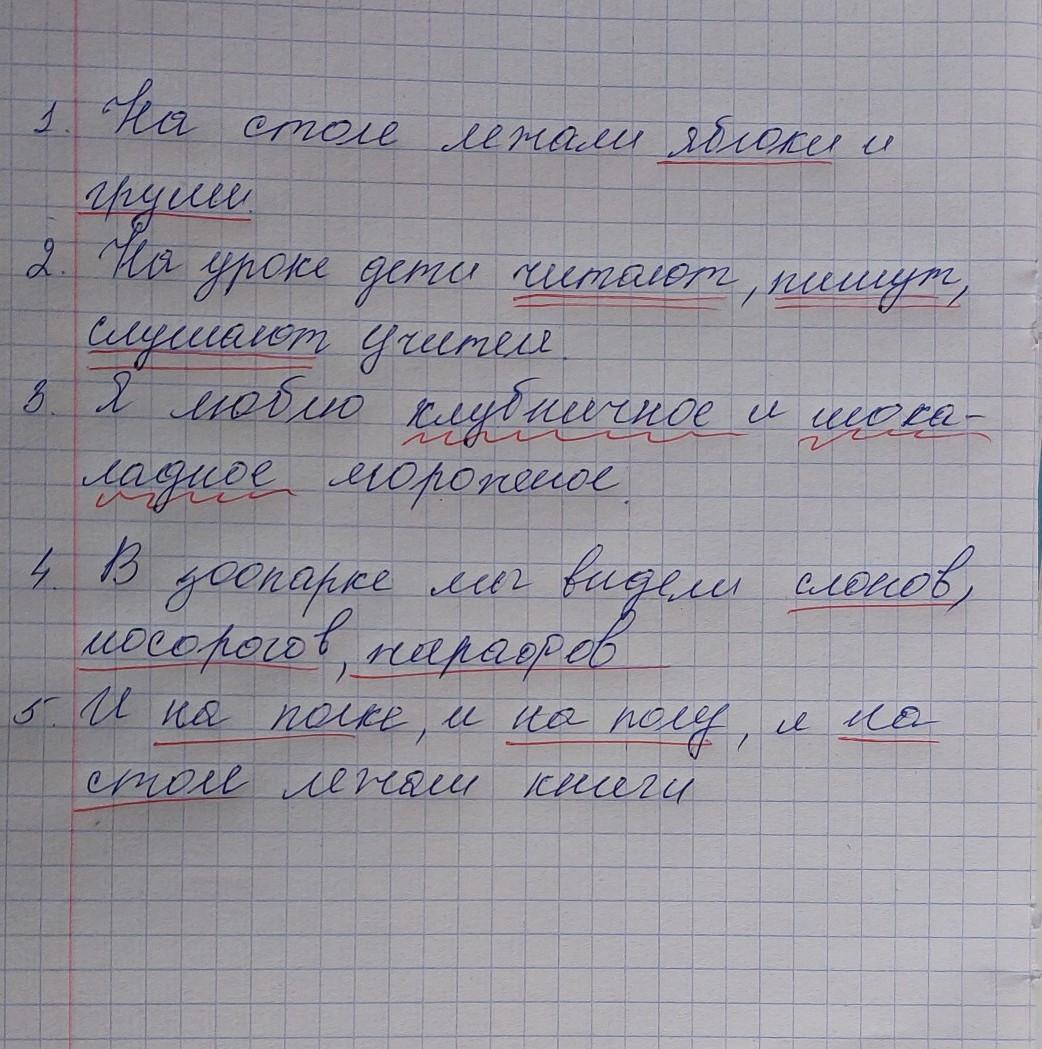 1. На столе лежали яблоки и
груши.
2. На уроке дети читают, пишут,
слушают учителя.
3. Я люблю клубничное и шока-
ладное мороженое.
4. В зоопарке мы видели слонов,
носорогов, жирафов
5. И на полке, и на полу, и на
столе лежали книги